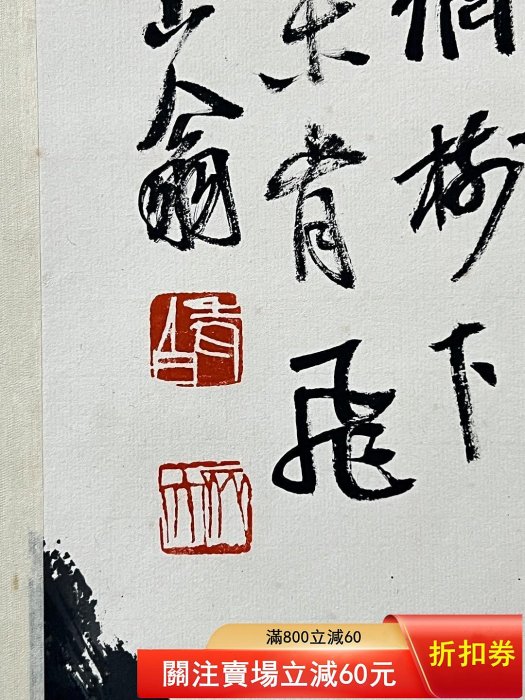 樹下
未肯飛
人翁
滿800立減60
關注賣場立減60元
折扣券